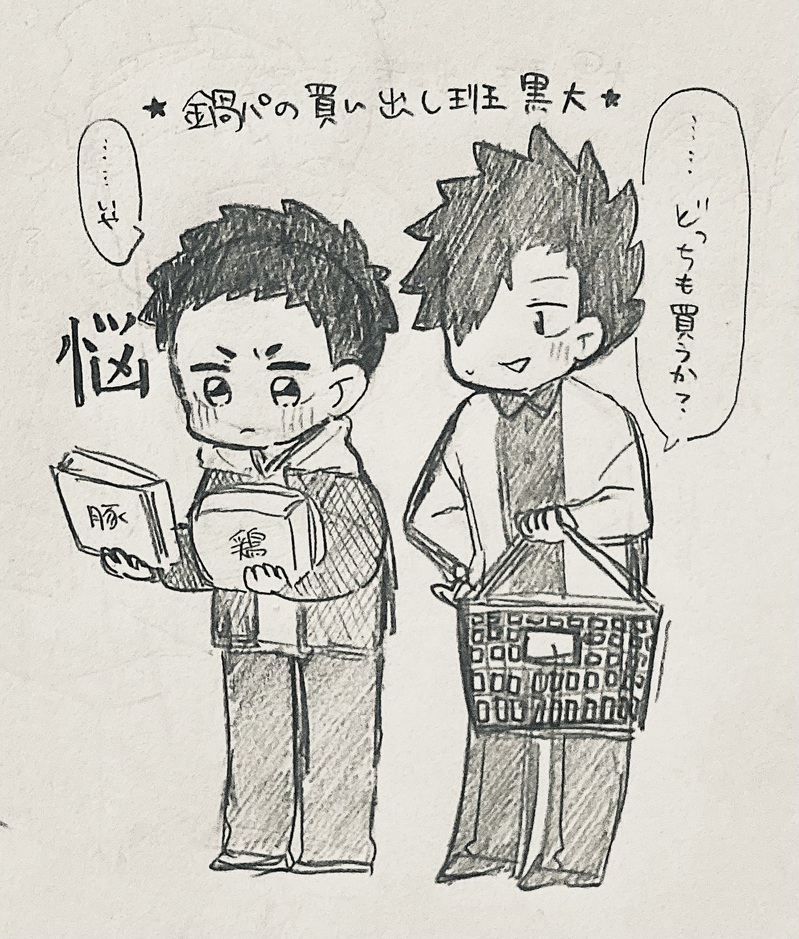 ★鍋パの買い出し班 黒大★
……どっちも買うか？
……いや
悩
豚
鶏